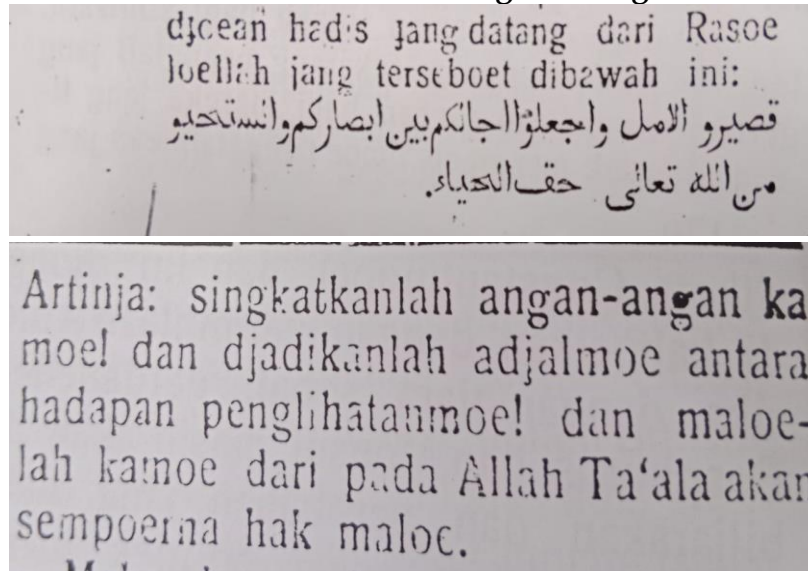 djoean hadis jang datang dari Rasoe
loellah jang terseboet dibawah ini:
قصيرو الامل واجعلؤا اجالكم بين ابصاركم وانستحيو
من الله تعالى حق الحياء.
Artinja: singkatkanlah angan-angan ka
moe! dan djadikanlah adjalmoe antara
hadapan penglihatanmoe! dan maloe-
lah kamoe dari pada Allah Ta‘ala akan
sempoerna hak maloe.